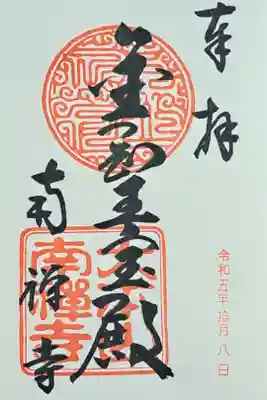 奉拝
令和五年拾月八日
金剛王宝殿
南禅寺
南禪寺